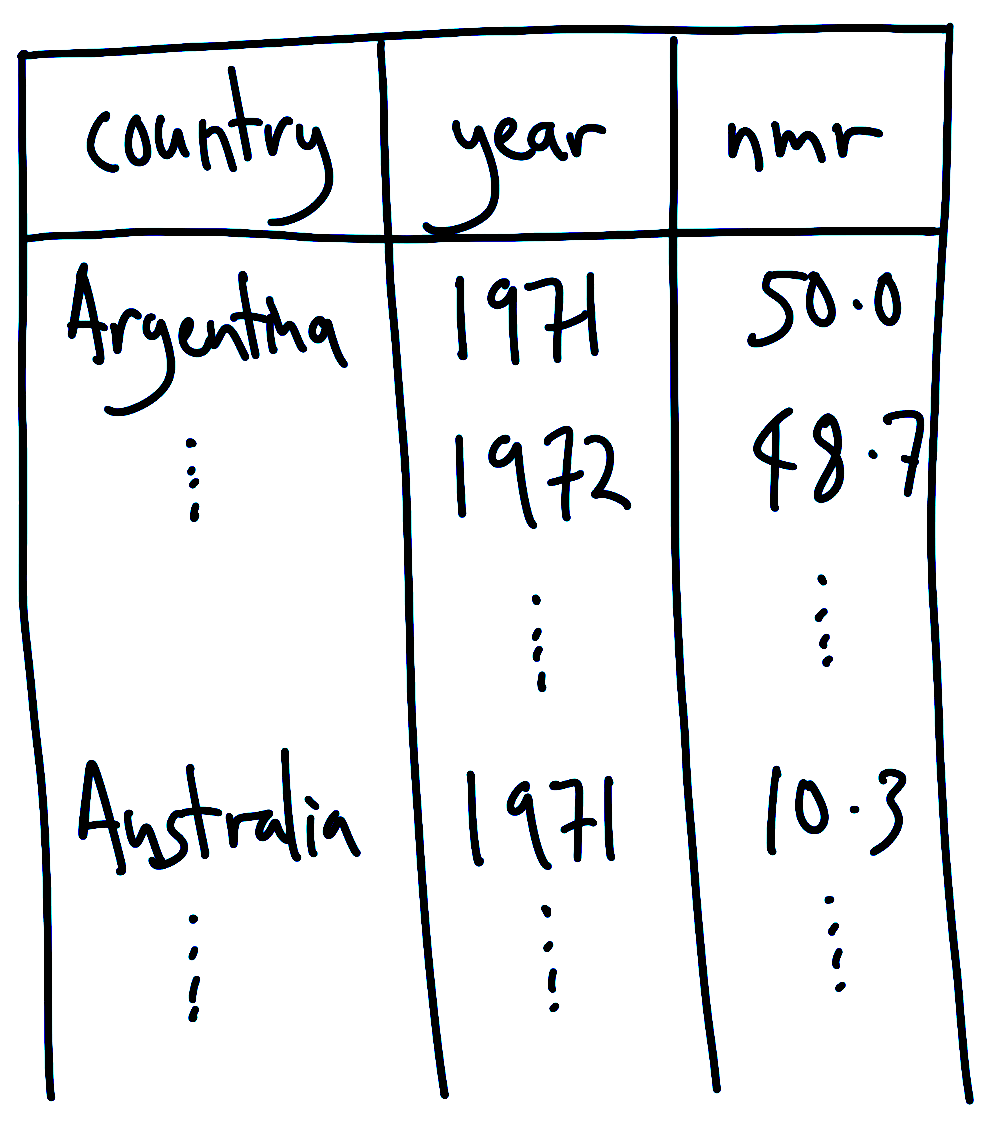 country year nmr
Argentina 1971 50.0
⋮ 1972 48.7
⋮ ⋮
Australia 1971 10.3
⋮ ⋮ ⋮